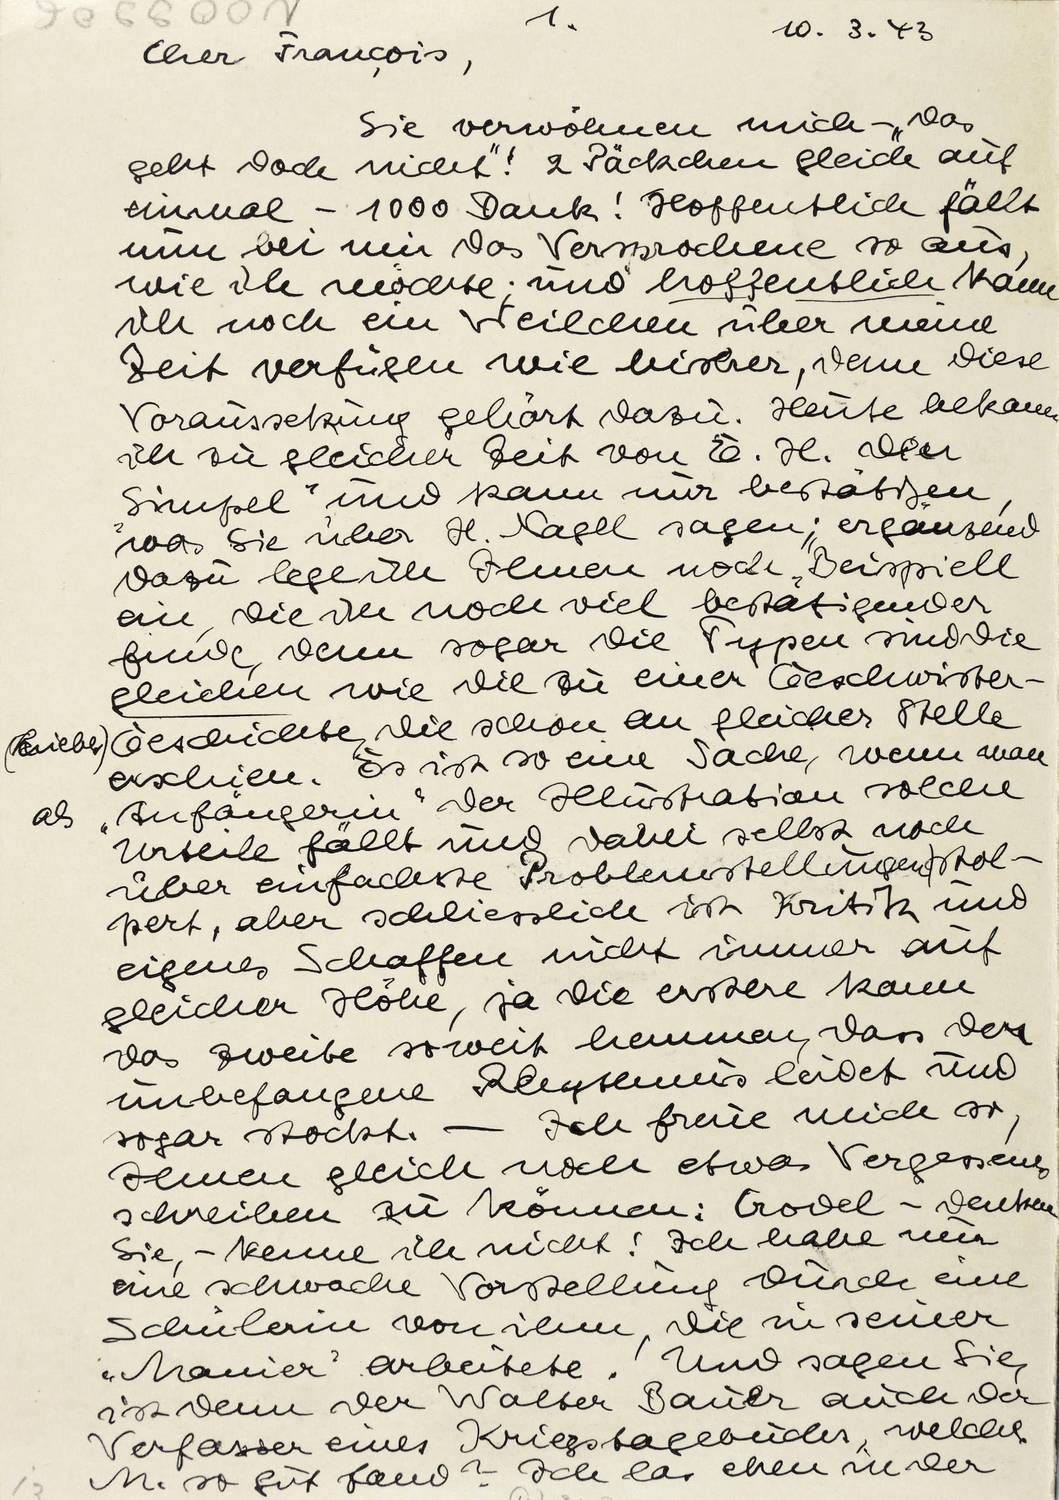 1.
10. 3. 43
Cher François,
Sie verwöhnen mich – „das
geht doch nicht"! 2 Päckchen gleich auf
einmal – 1000 Dank! Hoffentlich fällt
nun bei mir das Versprochene so aus,
wie ich möchte; und hoffentlich kann
ich noch ein Weilchen über meine
Zeit verfügen wie bisher, denn diese
Voraussetzung gehört dazu. Heute bekam
ich zu gleicher Zeit von E. H. den
„Simpel" und kann nur bestätigen,
was Sie über H. Nagel sagen; ergänzend
dazu lege ich Ihnen noch Beispiele
ein, die ich noch viel bestätigender
finde, denn sogar die Typen sind die
gleichen wie die zu einer Geschwister-
Geschichte, die schon an gleicher Stelle
erschien. Es ist so eine Sache, wenn man
als „Anfängerin" der Illustration solche
Urteile fällt und dabei selbst noch
über einfachste Problemstellungen stol-
pert, aber schliesslich ist Kritik und
eigenes Schaffen nicht immer auf
gleicher Höhe, ja die erstere kann
das zweite soweit hemmen, dass der
unbefangene Rhythmus leidet und
sogar stockt. — Ich freue mich so,
Ihnen gleich noch etwas Vergessenes
schreiben zu können: Crodel – denken
Sie, – kenne ich nicht! Ich habe nur
eine schwache Vorstellung durch eine
Schülerin von ihm, die in seiner
„Manier" arbeitete! Und sagen Sie,
ist denn der Walter Bauer auch der
Verfasser eines Kriegstagebuches, welches
M. so gut fand? Ich las eben in der